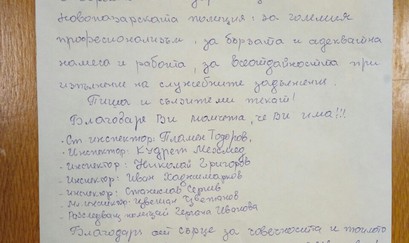 Новопазарската полиция, за големия
професионализъм, за бързата и адекватна
намеса и работа, за всеотдайността при
изпълнение на служебните задължения.
Пиша и сълзите ми текат!
Благодаря Ви момчета, че Ви има!!!
-Ст. инспектор: Пламен Тодоров,
-Инспектор: Кудрет Мехмед
-инспектор: Николай Григоров
-инспектор: Иван Хаджимарков
-инспектор: Станислав Сергев
-мл. инспектор: Цветан Цветанов
-Разследващ полицай Гергана Иванова
Благодаря от сърце за човечността и топлото